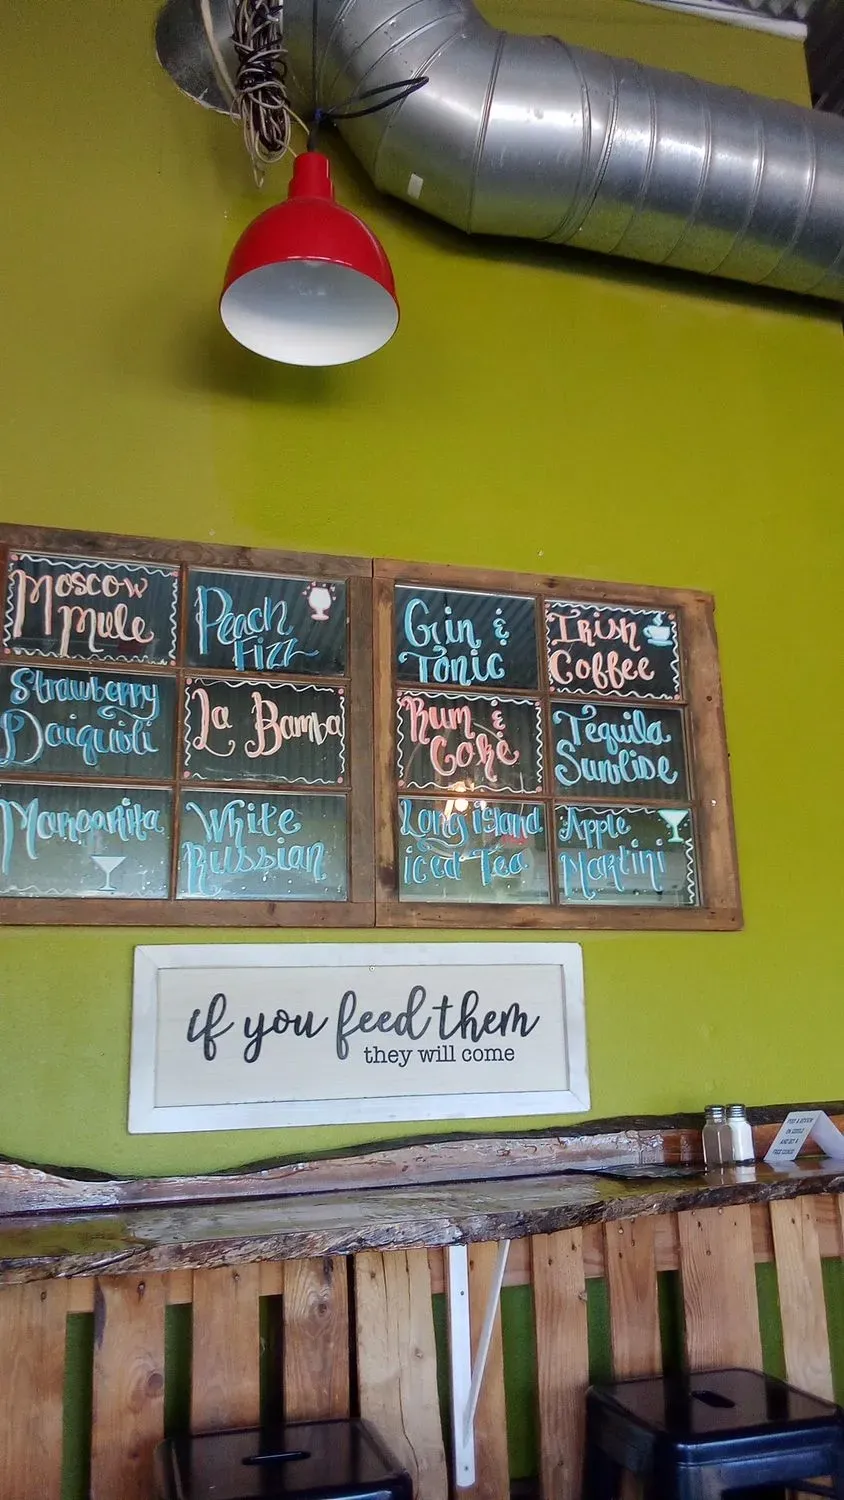 Moscow
Mule
Peach
Fizz
Strawberry
Daiquioli
La Bamba
Margarita
White
Russian
Gin &
Tonic
Irish
Coffee
Rum &
Coke
Tequila
Sunrise
Long island
iced Tea
Apple
Martini
if you feed them
they will come
POST A REVIEW
ON GOOGLE
AND GET A
FREE COOKIE!